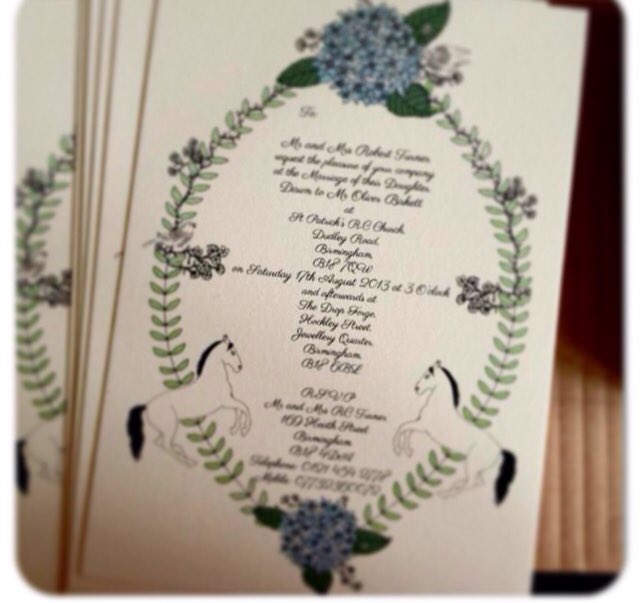 To
Mr and Mrs Robert Turner
request the pleasure of your company
at the Marriage of their Daughter
Dawn to Mr Oliver Birkett
at
St Patrick's RC Church,
Dudley Road,
Birmingham,
B18 7QW
on Saturday 17th August 2013 at 3 O'clock
and afterwards at
The Drop Forge,
Hockley Street,
Jewellery Quarter,
Birmingham,
B18 6BL
RSVP
Mr and Mrs RC Turner
Heath Street
Birmingham
B18
Telephone: 0121 454
Mobile: